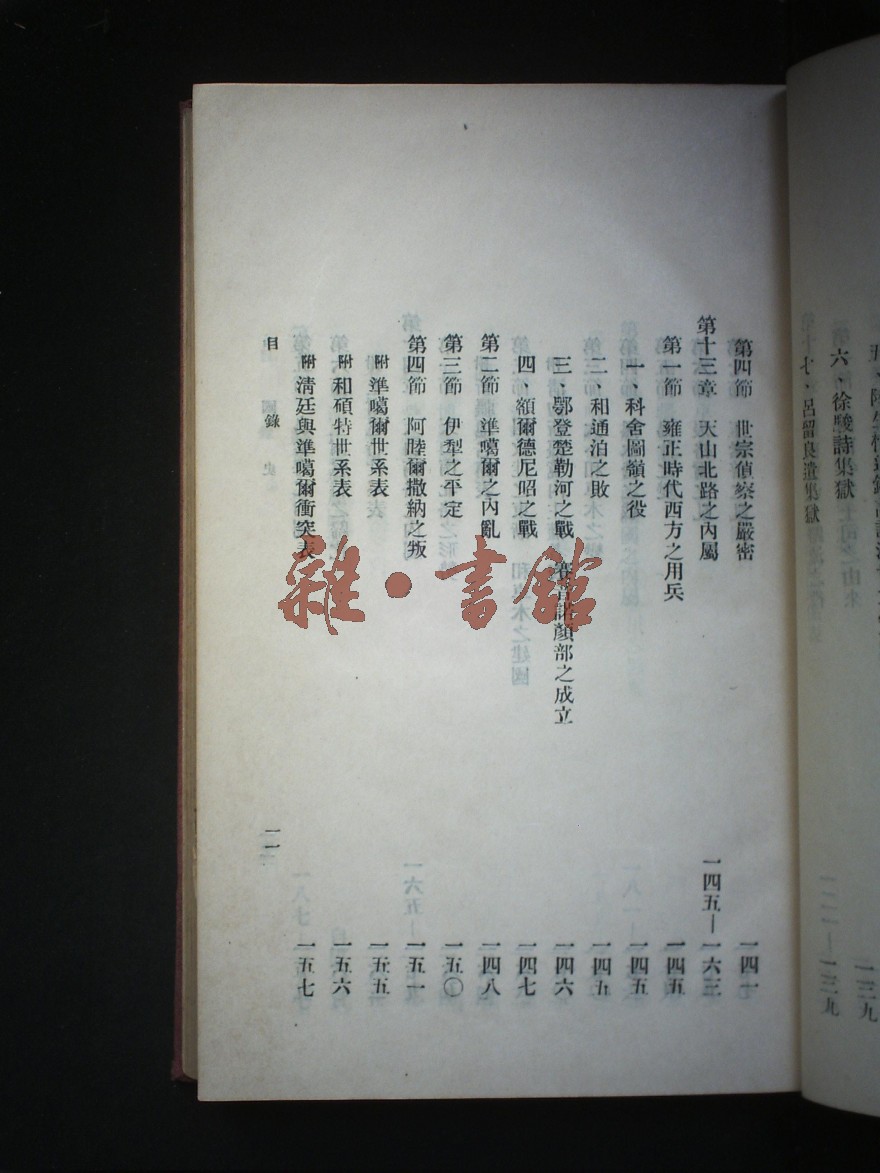 六、徐駿詩集獄
七、呂留良遺集獄 一二一—一三九
第四節 世宗偵察之嚴密 一四一
第十三章 天山北路之內屬 一四五—一六三
第一節 雍正時代西方之用兵 一四五
一、科舍圖嶺之役 一四五
二、和通泊之敗 一四五
三、鄂登楚勒河之戰 賽音諾顏部之成立 一四六
四、額爾德尼昭之戰 一四七
第二節 準噶爾之內亂 一四八
第三節 伊犁之平定 一五〇
第四節 阿陸爾撒納之叛 一五一
附 準噶爾世系表 一五五
附 和碩特世系表 一五六
附 清廷與準噶爾衝突表 一五七
目錄 一一
雜·書館